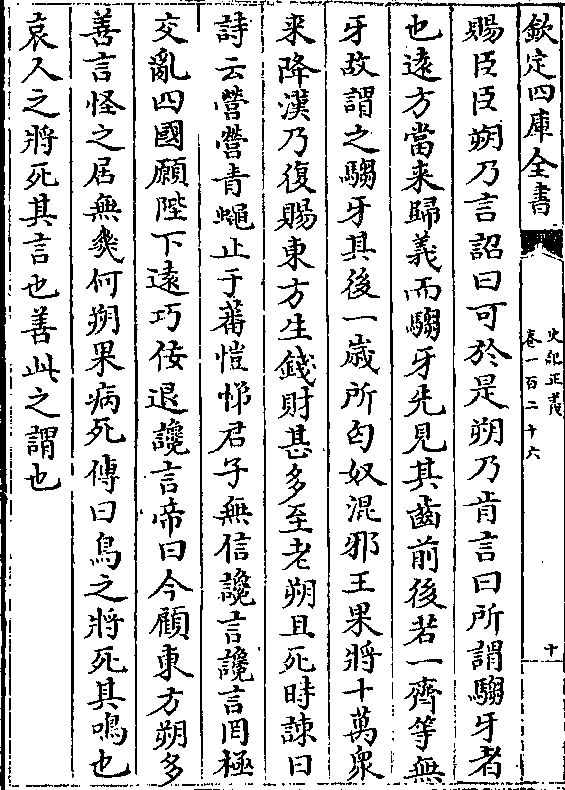 欽定四庫全書
史記正義
卷一百二十六
十
賜臣臣朔乃言詔曰可於是朔乃肯言曰所謂騶牙者
也遠方當来歸義而騶牙先見其齒前後若一齊等無
牙故謂之騶牙其後一歲所匈奴混邪王果將十萬衆
来降漢乃復賜東方生錢財甚多至老朔且死時諫曰
詩云營營青蠅止于蕃愷悌君子無信讒言讒言罔極
交亂四國願陛下遠巧佞退讒言帝曰今顧東方朔多
善言怪之居無幾何朔果病死傳曰鳥之將死其鳴也
哀人之將死其言也善此之謂也